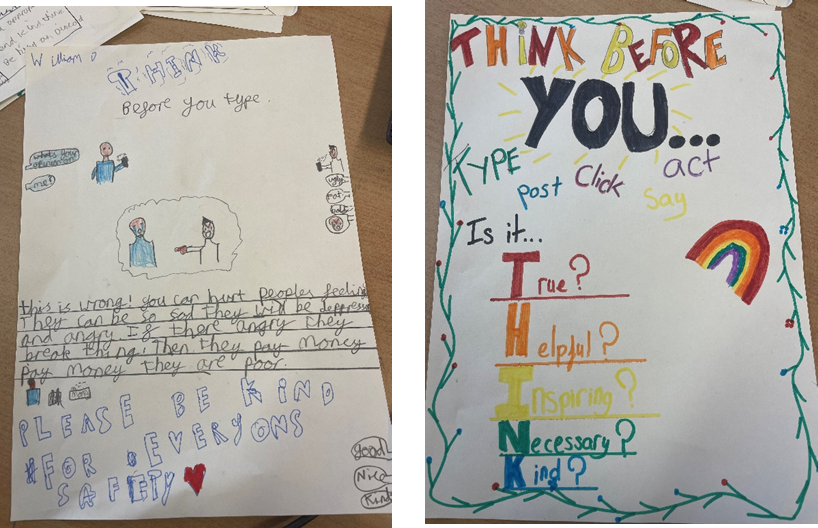 William D
THINK
Before you type.
what's your
meh
ugly
this is wrong! you can hurt peoples feelin
They can be so sad they will be depressed
and angry. If there angry they
break thing! Then they pay money
pay money they are poor.
PLEASE BE KIND
FOR EVERYONS
SAFIETY
good
Nice
Kind
THINK BEFORE
YOU...
TYPE
post
Click
act
Say
Is it...
True?
Helpful?
Inspiring?
Necessary?
Kind?